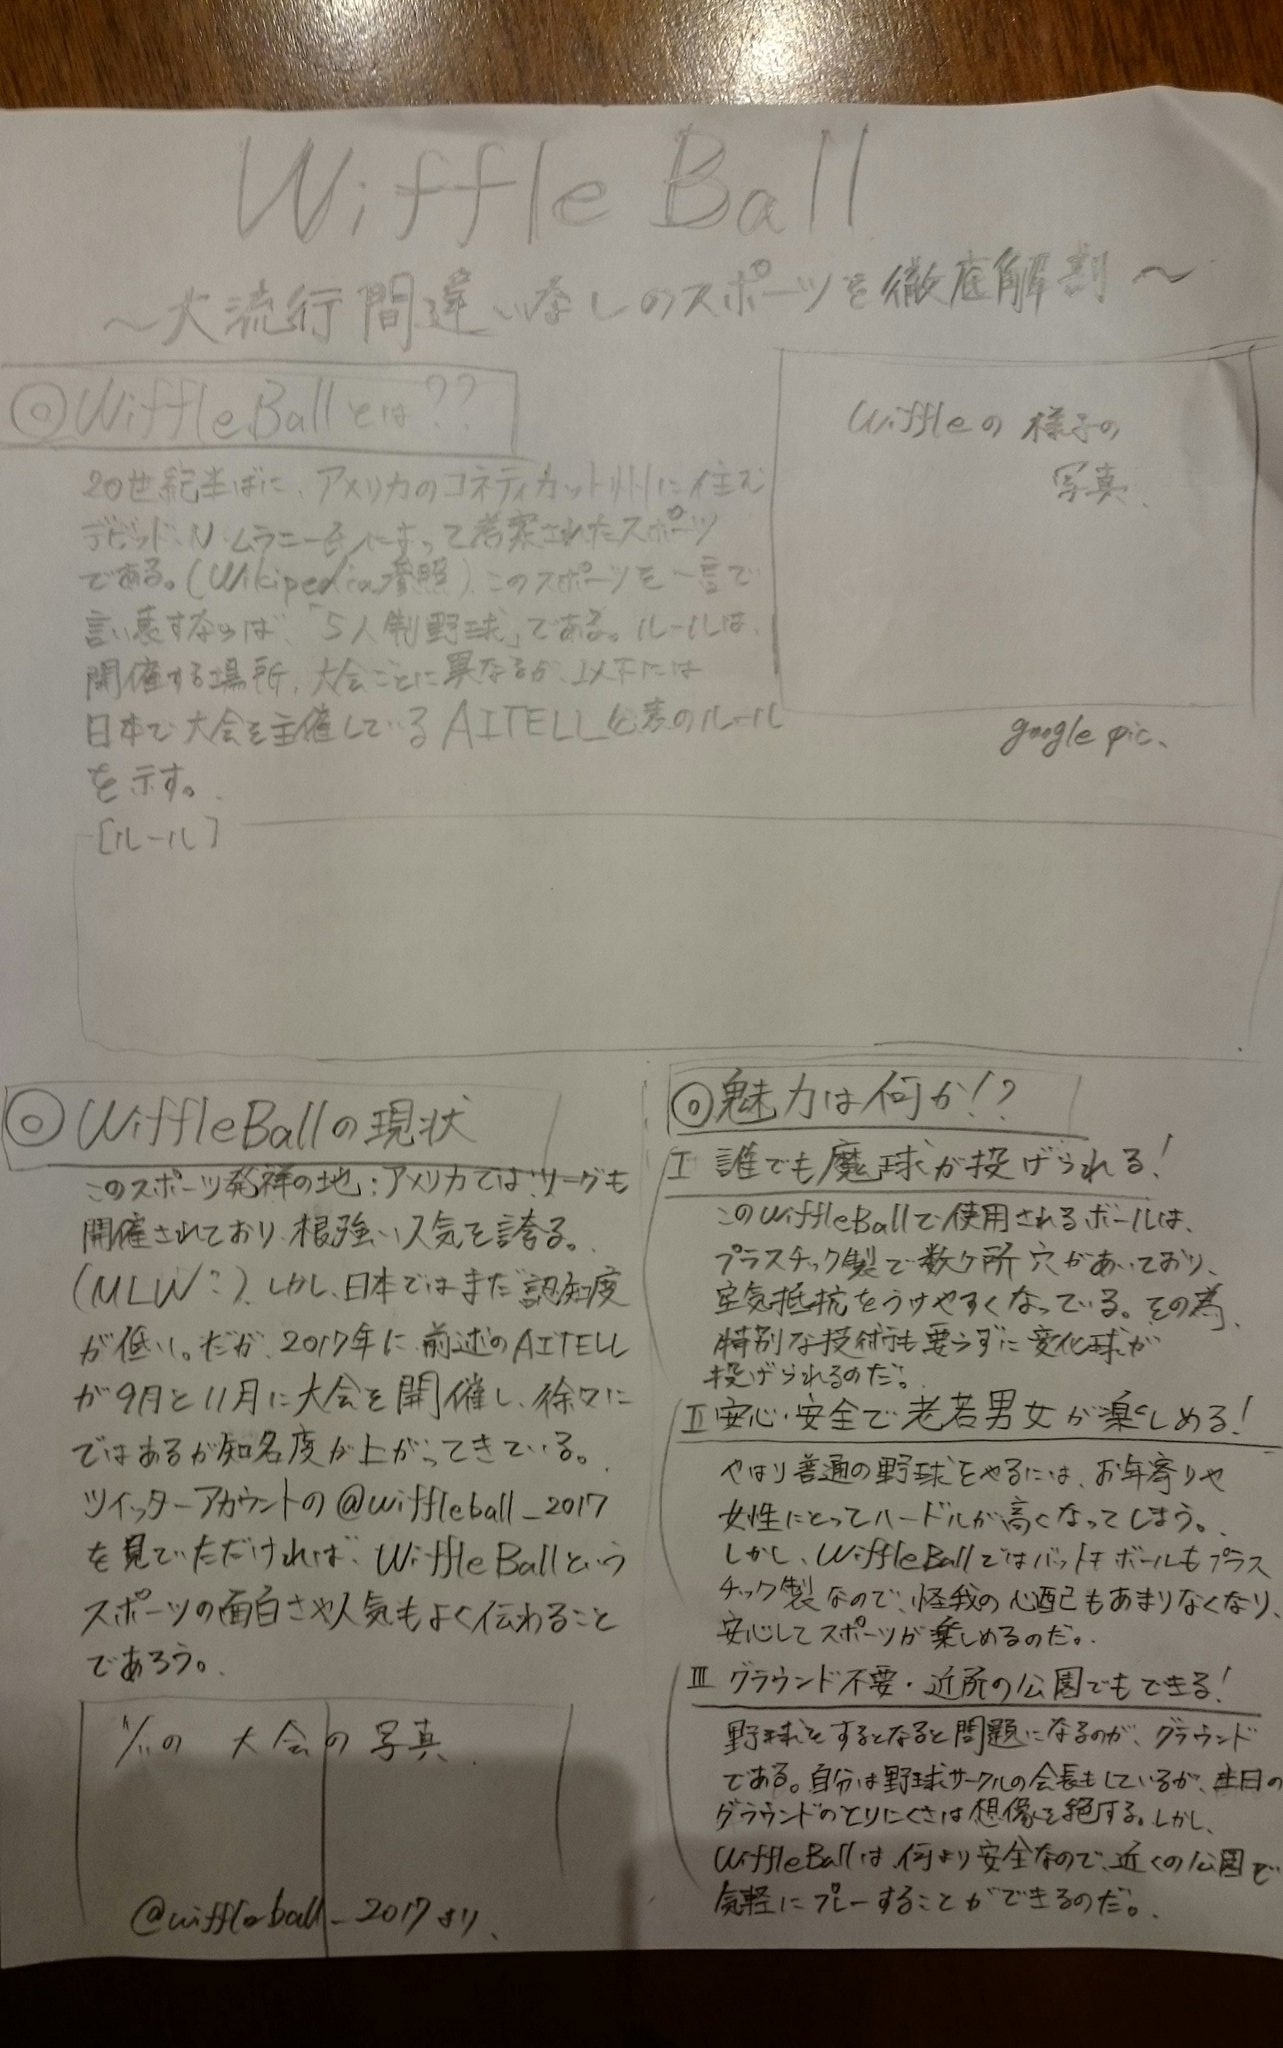 Wiffle Ball
～大流行間違いなしのスポーツを徹底解剖～
◎WiffleBallとは??
20世紀半ばに、アメリカのコネティカット州に住む
デビッド・N・ムラニー氏によって考案されたスポーツ
である。(Wikipedia参照)このスポーツを一言で
言い表すならば、「5人制野球」である。ルールは、
開催する場所、大会ごとに異なるが、以下には
日本で大会を主催しているAITELL公表のルール
を示す。
Wiffleの様子の
写真、
google pic、
[ルール]
◎WiffleBallの現状
このスポーツ発祥の地：アメリカではリーグも
開催されており、根強い人気を誇る。
(MLW:)、しかし、日本ではまだ認知度
が低い。だが、2017年に前述のAITELL
が9月と11月に大会を開催し、徐々に
ではあるが知名度が上がってきている。
ツイッターアカウントの@wiffleball_2017
を見ていただければ、WiffleBallという
スポーツの面白さや人気もよく伝わること
であろう。
の 大会の写真
@wiffleball_2017より、
◎魅力は何か!?
Ⅰ 誰でも魔球が投げられる!
このWiffleBallで使用されるボールは、
プラスチック製で数ヶ所穴があいており、
空気抵抗をうけやすくなっている。その為、
特別な技術も要らずに変化球が
投げられるのだ。
Ⅱ 安心・安全で老若男女が楽しめる!
やはり普通の野球をやるには、お年寄りや
女性にとってハードルが高くなってしまう。
しかし、WiffleBallではバットもボールもプラス
チック製なので、怪我の心配もあまりなくなり、
安心してスポーツが楽しめるのだ。
Ⅲ グラウンド不要・近所の公園でもできる!
野球をするとなると問題になるのが、グラウンド
である。自分は野球サークルの会長もしているが、土日の
グラウンドのとりにくさは想像を絶する。しかし、
WiffleBallは、何より安全なので、近くの公園で
気軽にプレーすることができるのだ。